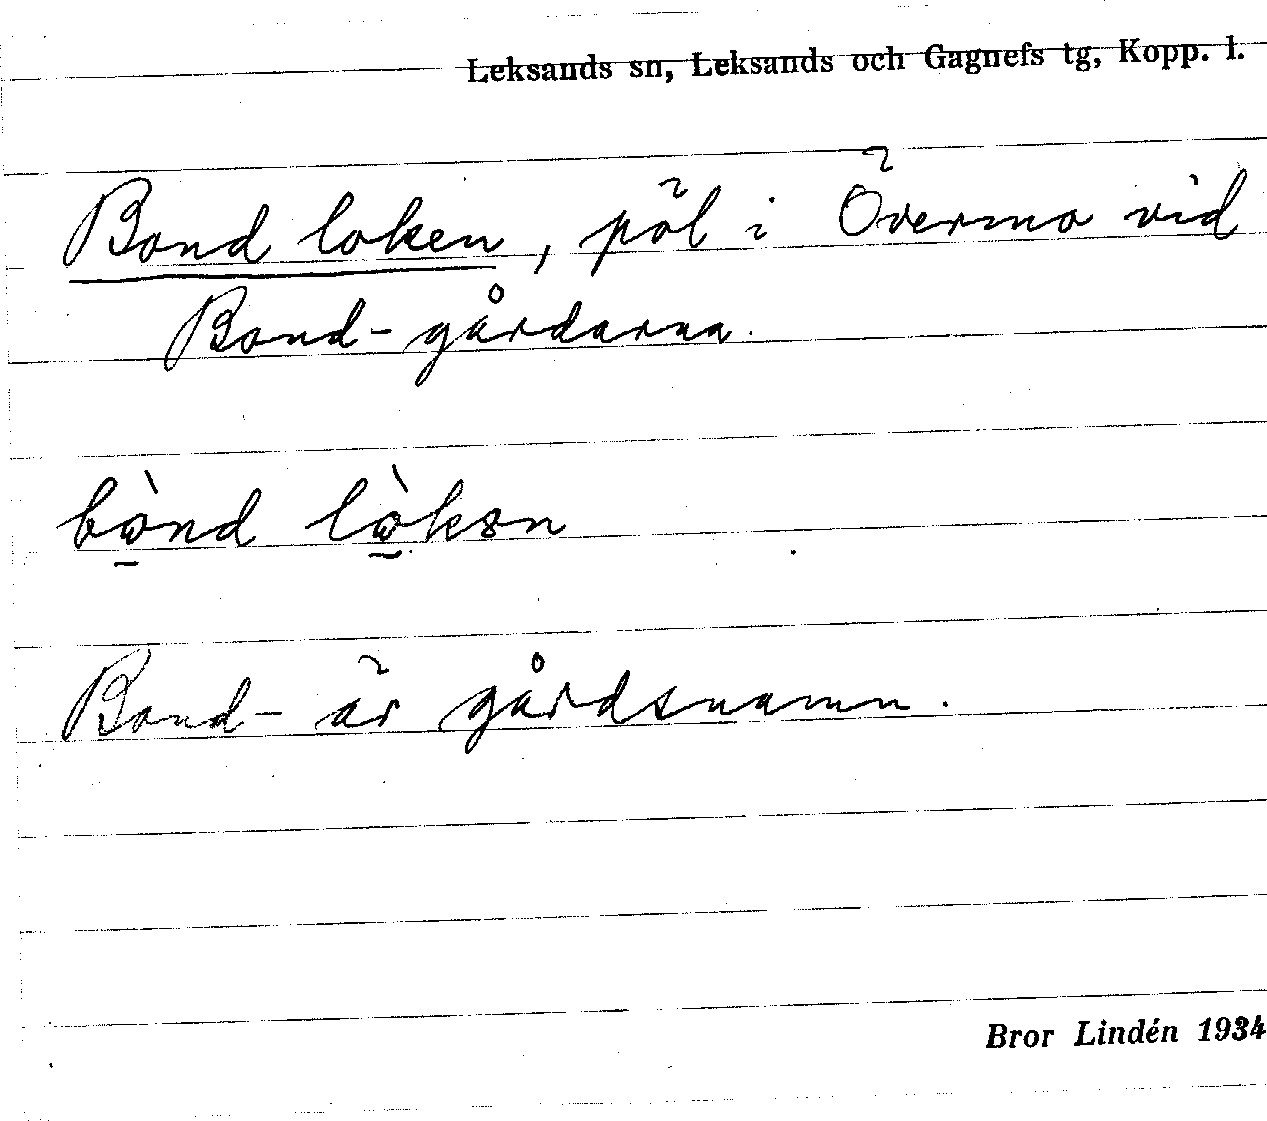 Leksands sn, Leksands och Gagnefs tg, Kopp. l.
Bond loken, pöl i Övermo vid
Bond-gårdarna.
bò̠nd lò̠kən
Bond- är gårdsnamn.
Bror Lindén 1934